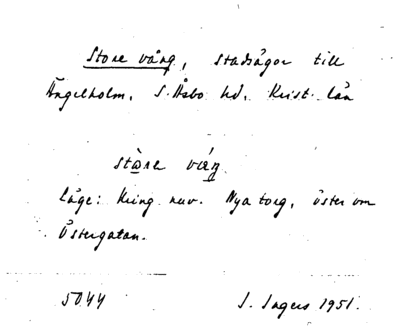 Store vång, stadsägor till
Ängelholm, S. Åsbo hd, Krist. län
stɷ̀re váŋ
läge: Kring nuv. Nya torg, öster om
Östergatan.
5044 J. Ingers 1951.